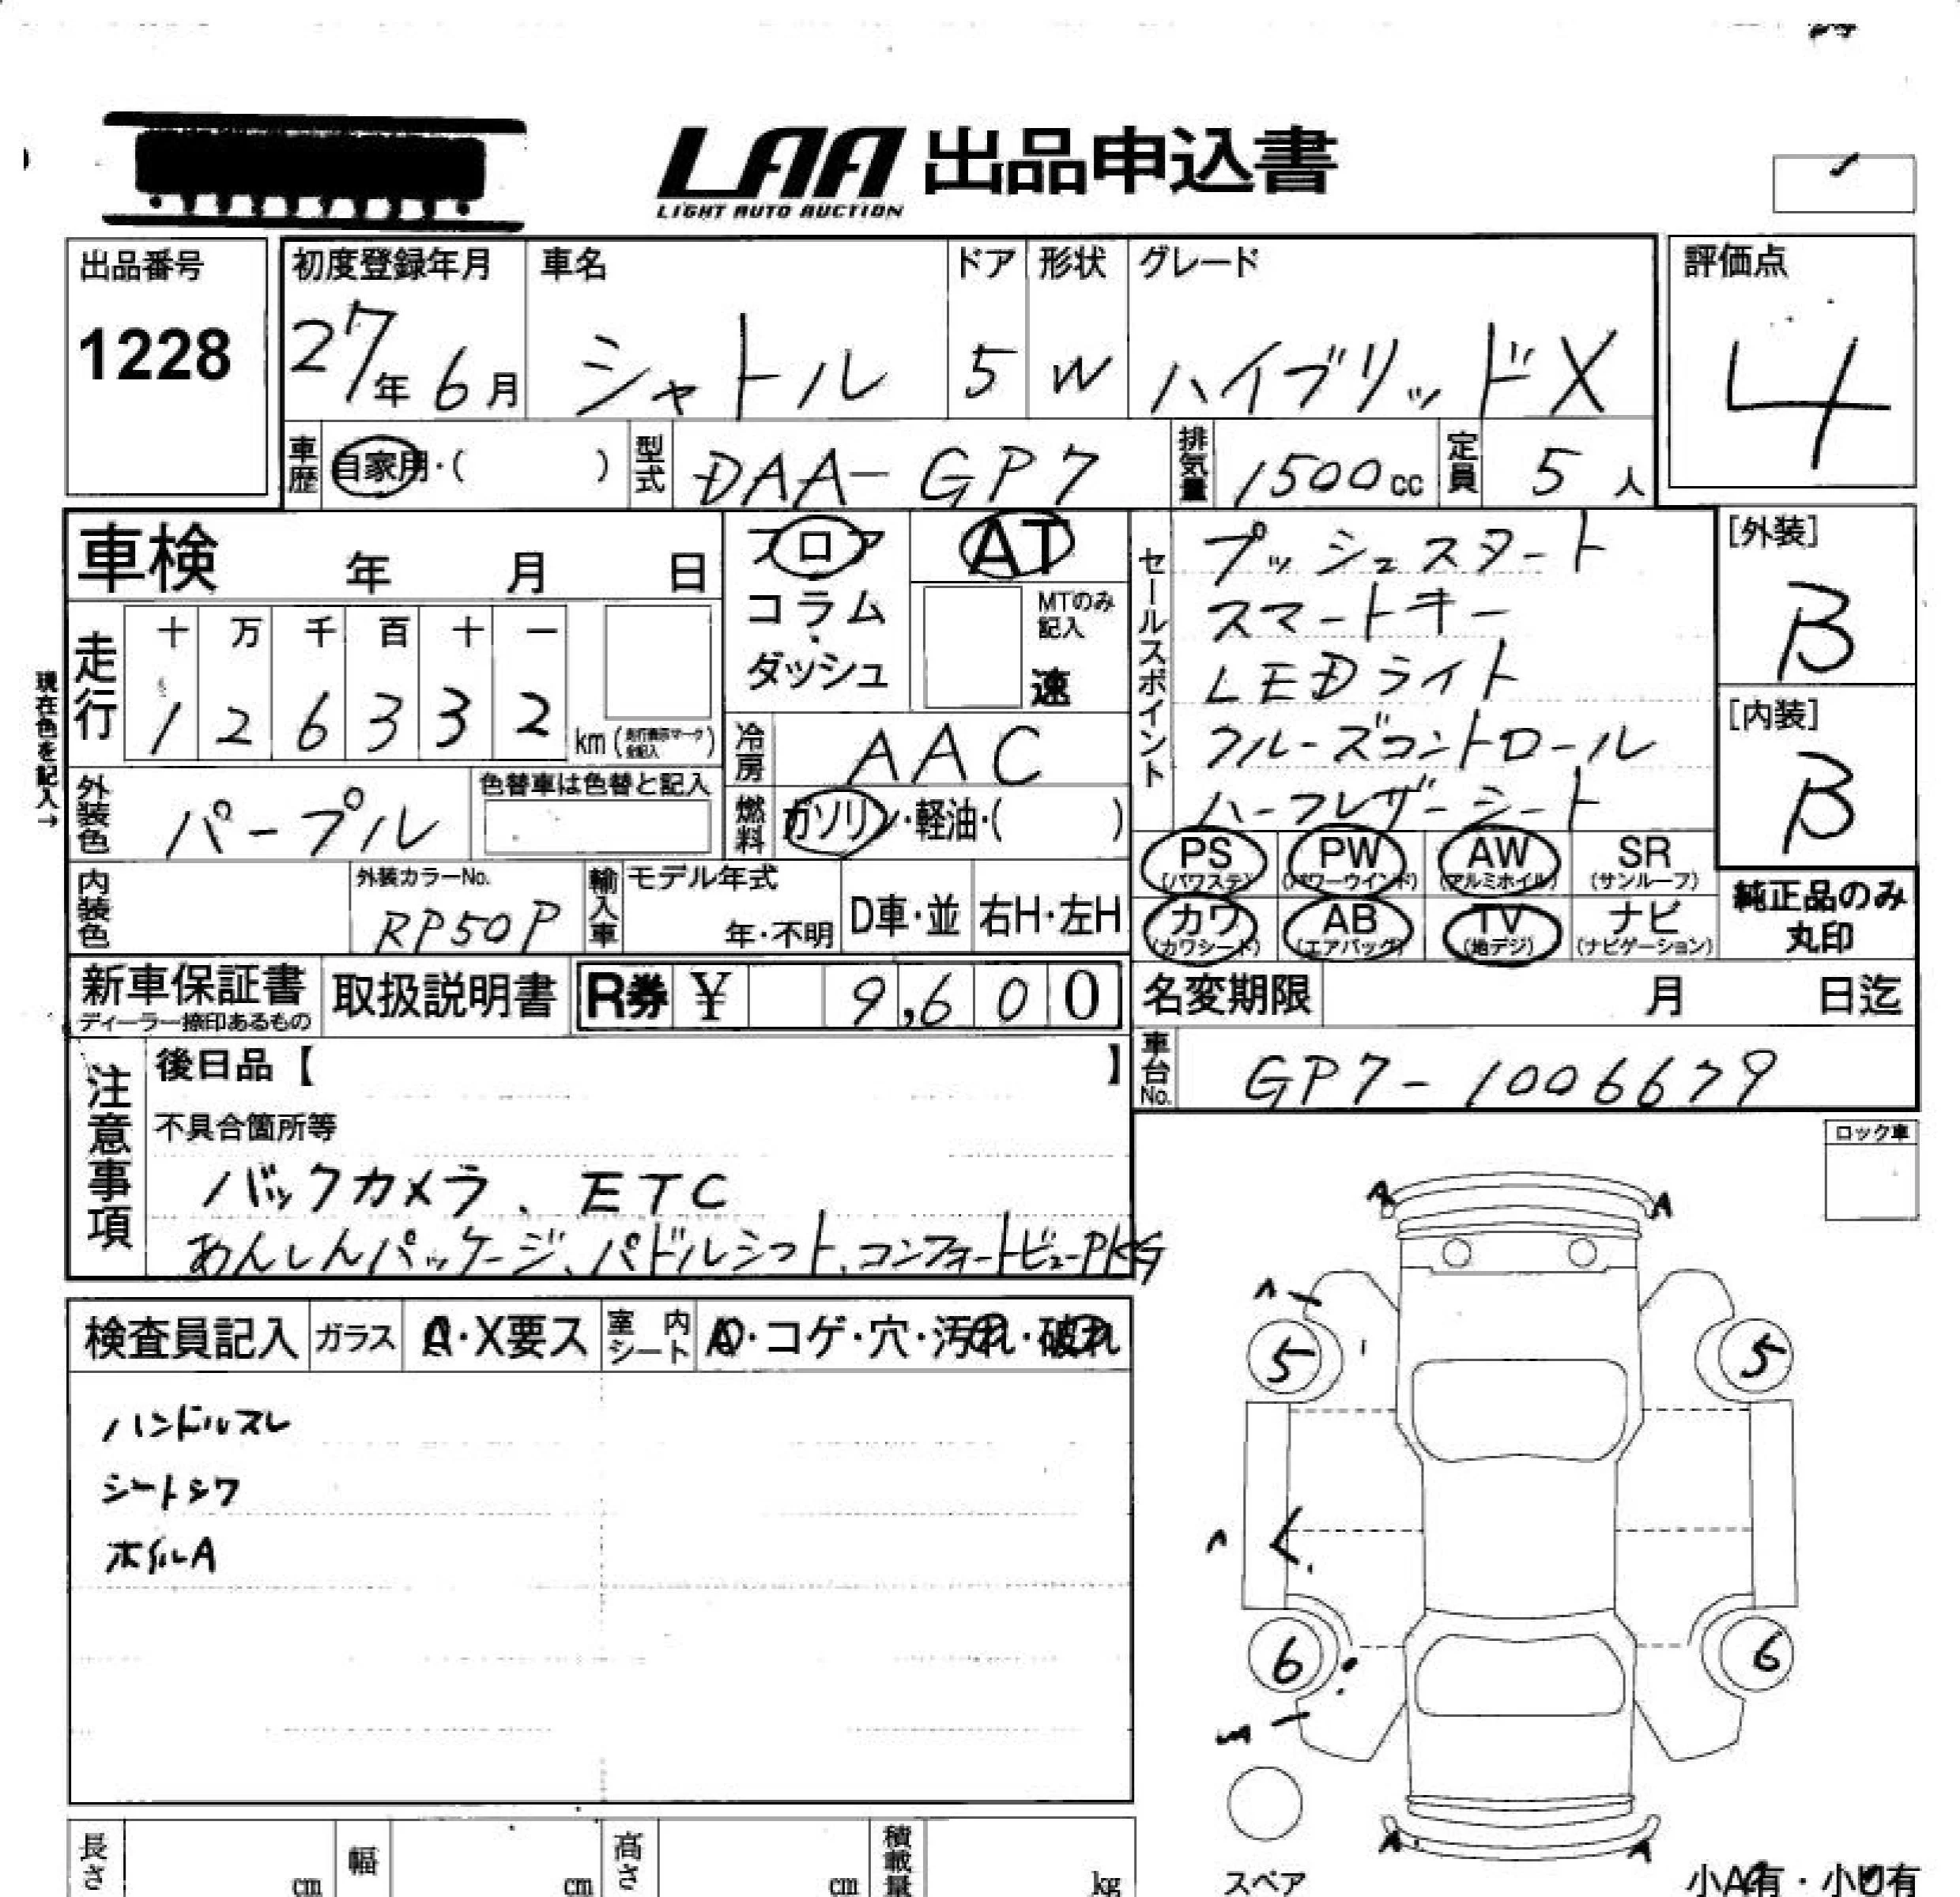 LAA 出品申込書
LIGHT AUTO AUCTION
出品番号
1228
初度登録年月
27年6月
車名
シャトル
ドア
5
形状
W
グレード
ハイブリッドX
評価点
4
車歴
自家用・( )
型式
DAA-GP7
排気量
1500cc
定員
5人
車検 年 月 日
フロア
コラム
・
ダッシュ
AT
MTのみ記入
速
セールスポイント
プッシュスタート
スマートキー
LEDライト
クルーズコントロール
ハーフレザーシート
[外装]
B
[内装]
B
現在色を記入→
走行
十 万 千 百 十 一
1 2 6 3 3 2 km
冷房
AAC
外装色
パープル
色替車は色替と記入
燃料
ガソリン・軽油・( )
PS (パワステ)
PW (パワーウインド)
AW (アルミホイル)
SR (サンルーフ)
カワ (カワシート)
AB (エアバッグ)
TV (地デジ)
ナビ (ナビゲーション)
純正品のみ
丸印
内装色
外装カラーNo.
RP50P
輸入車
モデル年式
年・不明
D車・並
右H・左H
新車保証書
ディーラー捺印あるもの
取扱説明書
R券 ¥ 9,600
名変期限 月 日迄
車台No.
GP7-1006679
注意事項
後日品【 】
不具合箇所等
バックカメラ、ETC
あんしんパッケージ、パドルシフト、コンフォートビューPKG
ロック車
検査員記入
ガラス
A・X要ス
室内シート
A・コゲ・穴・汚れ・破れ
ハンドルスレ
シートシワ
ホイルA
A A
5 5
6 6
A A
スペア
長さ cm
幅 cm
高さ cm
積載量 kg
小A有・小U有